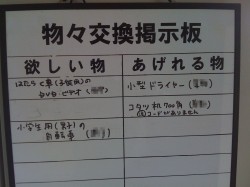 物々交換掲示板
欲しい物
あげれる物
はたらく車(子供用)の
DVD・ビデオ
小型ドライヤー
小学生用(男子)の
自転車
コタツ 丸700角
コードがありません